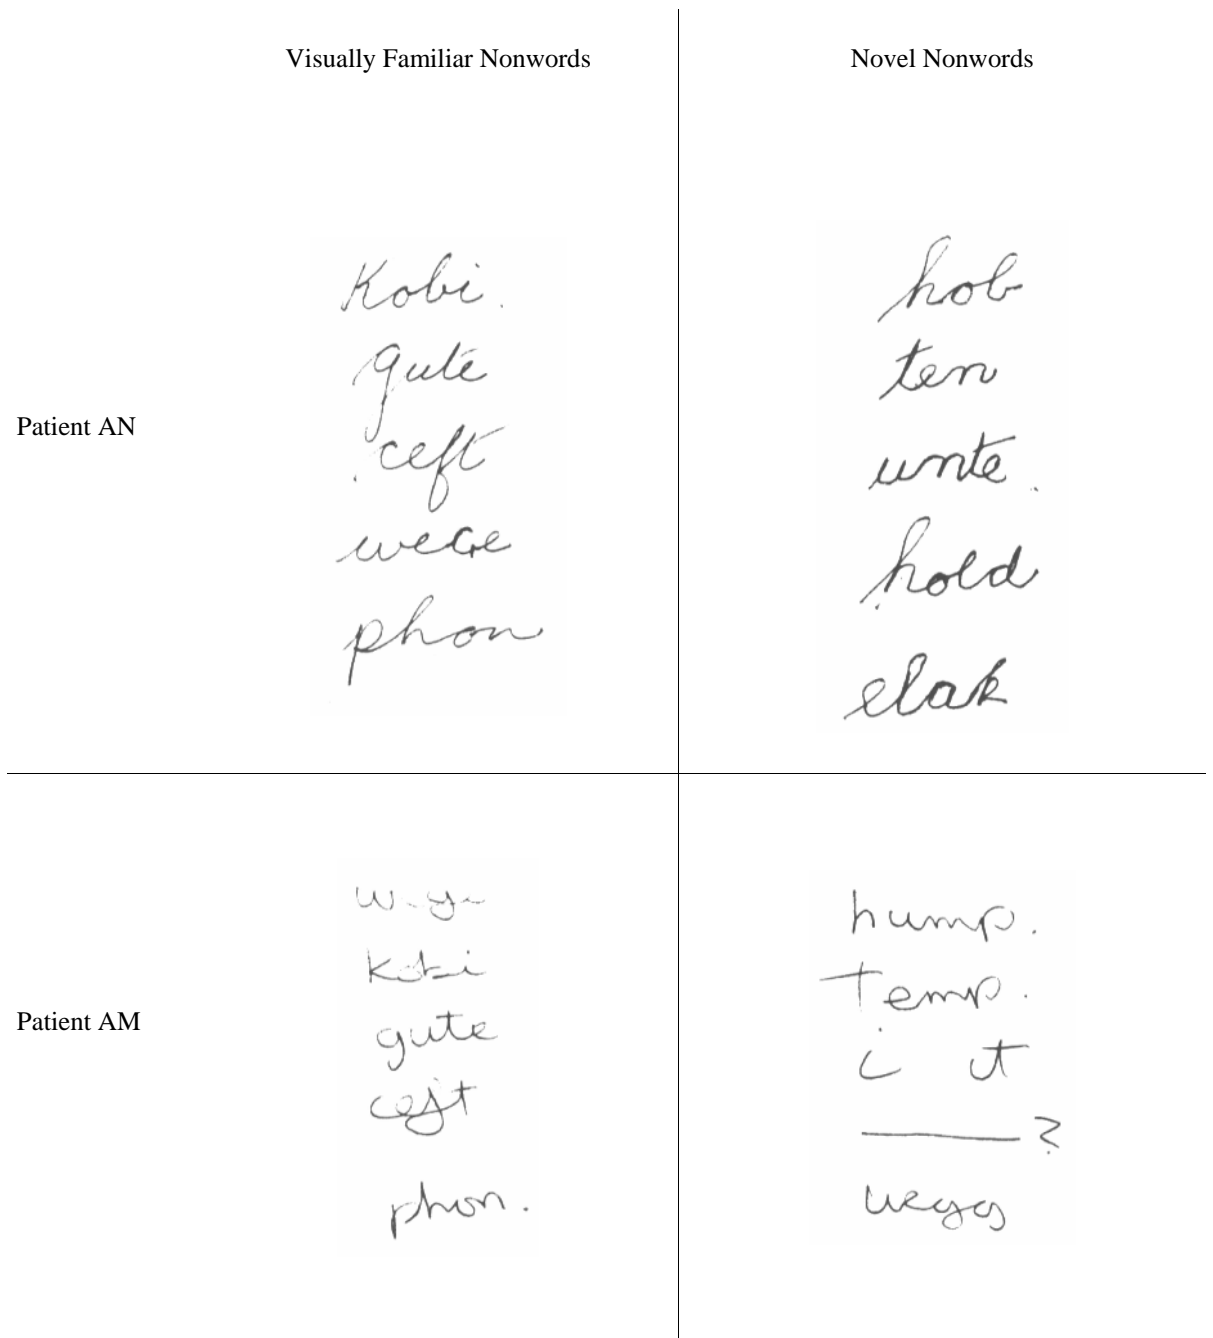 Visually Familiar Nonwords
Novel Nonwords
Patient AN
Kobi.
gute
ceft
wece
phon
hob
ten
unte.
hold
elak
Patient AM
kobi
gute
ceft
phon.
hump.
Temp.
i ut
?
uegg